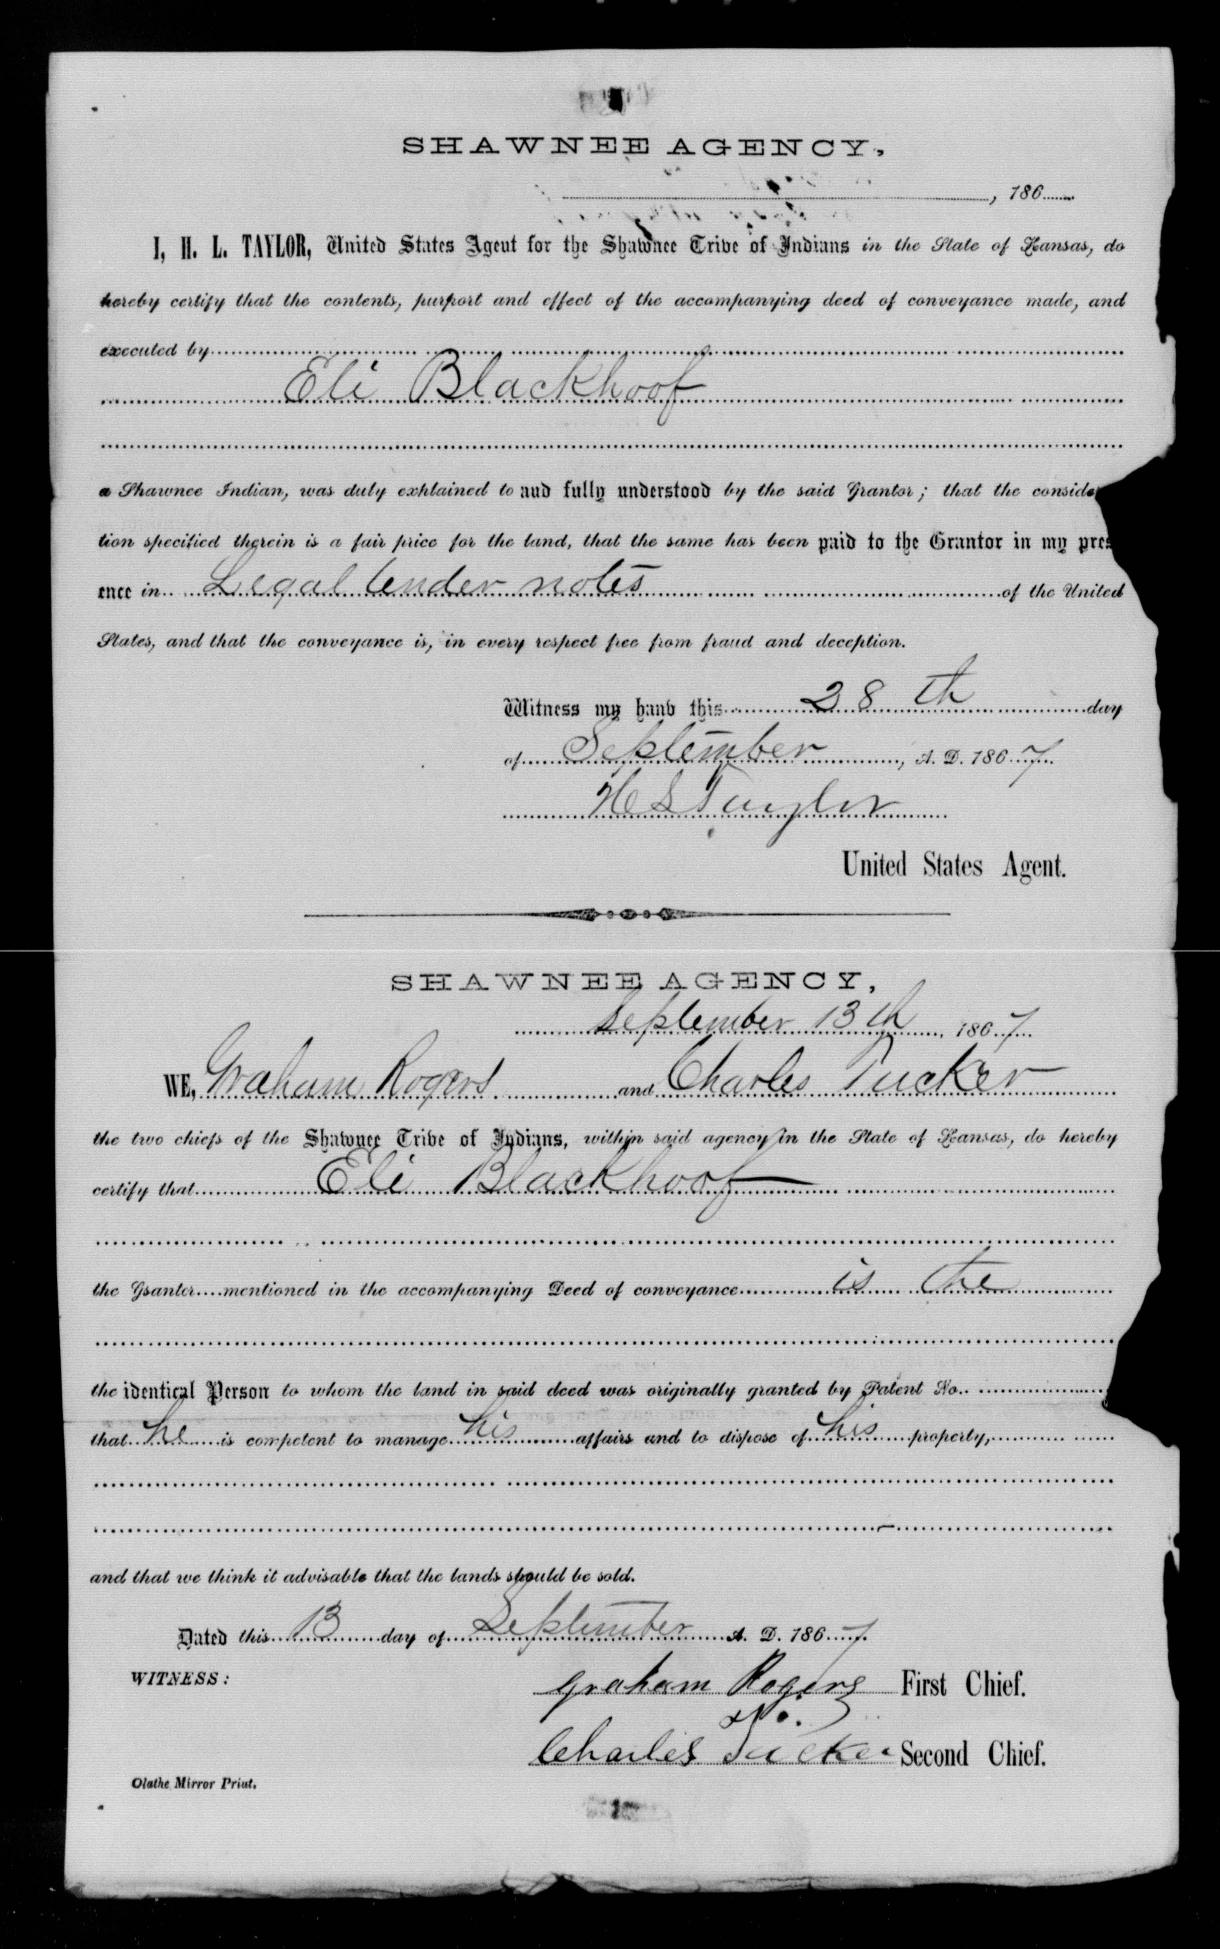 SHAWNEE AGENCY,
, 186
I, H. L. TAYLOR, United States Agent for the Shawnee Tribe of Indians in the State of Kansas, do
hereby certify that the contents, purport and effect of the accompanying deed of conveyance made, and
executed by
Eli Blackhoof
a Shawnee Indian, was duly exhlained to and fully understood by the said Grantor; that the considera
tion specified therein is a fair price for the land, that the same has been paid to the Grantor in my pres
ence in Legal tender notes of the United
States, and that the conveyance is, in every respect free from fraud and deception.
Witness my hand this 28th day
of September, A. D. 1867
H L Taylor
United States Agent.
SHAWNEE AGENCY,
September 13th, 1867
WE, Graham Rogers and Charles Tucker
the two chiefs of the Shawnee Tribe of Indians, within said agency in the State of Kansas, do hereby
certify that Eli Blackhoof
the Grantor mentioned in the accompanying Deed of conveyance is the
the identical Person to whom the land in said deed was originally granted by Patent No.
that he is competent to manage his affairs and to dispose of his property,
and that we think it advisable that the lands should be sold.
Dated this 13 day of September A. D. 1867
WITNESS:
Graham Rogers First Chief.
Charles Tucker Second Chief.
Olathe Mirror Print.